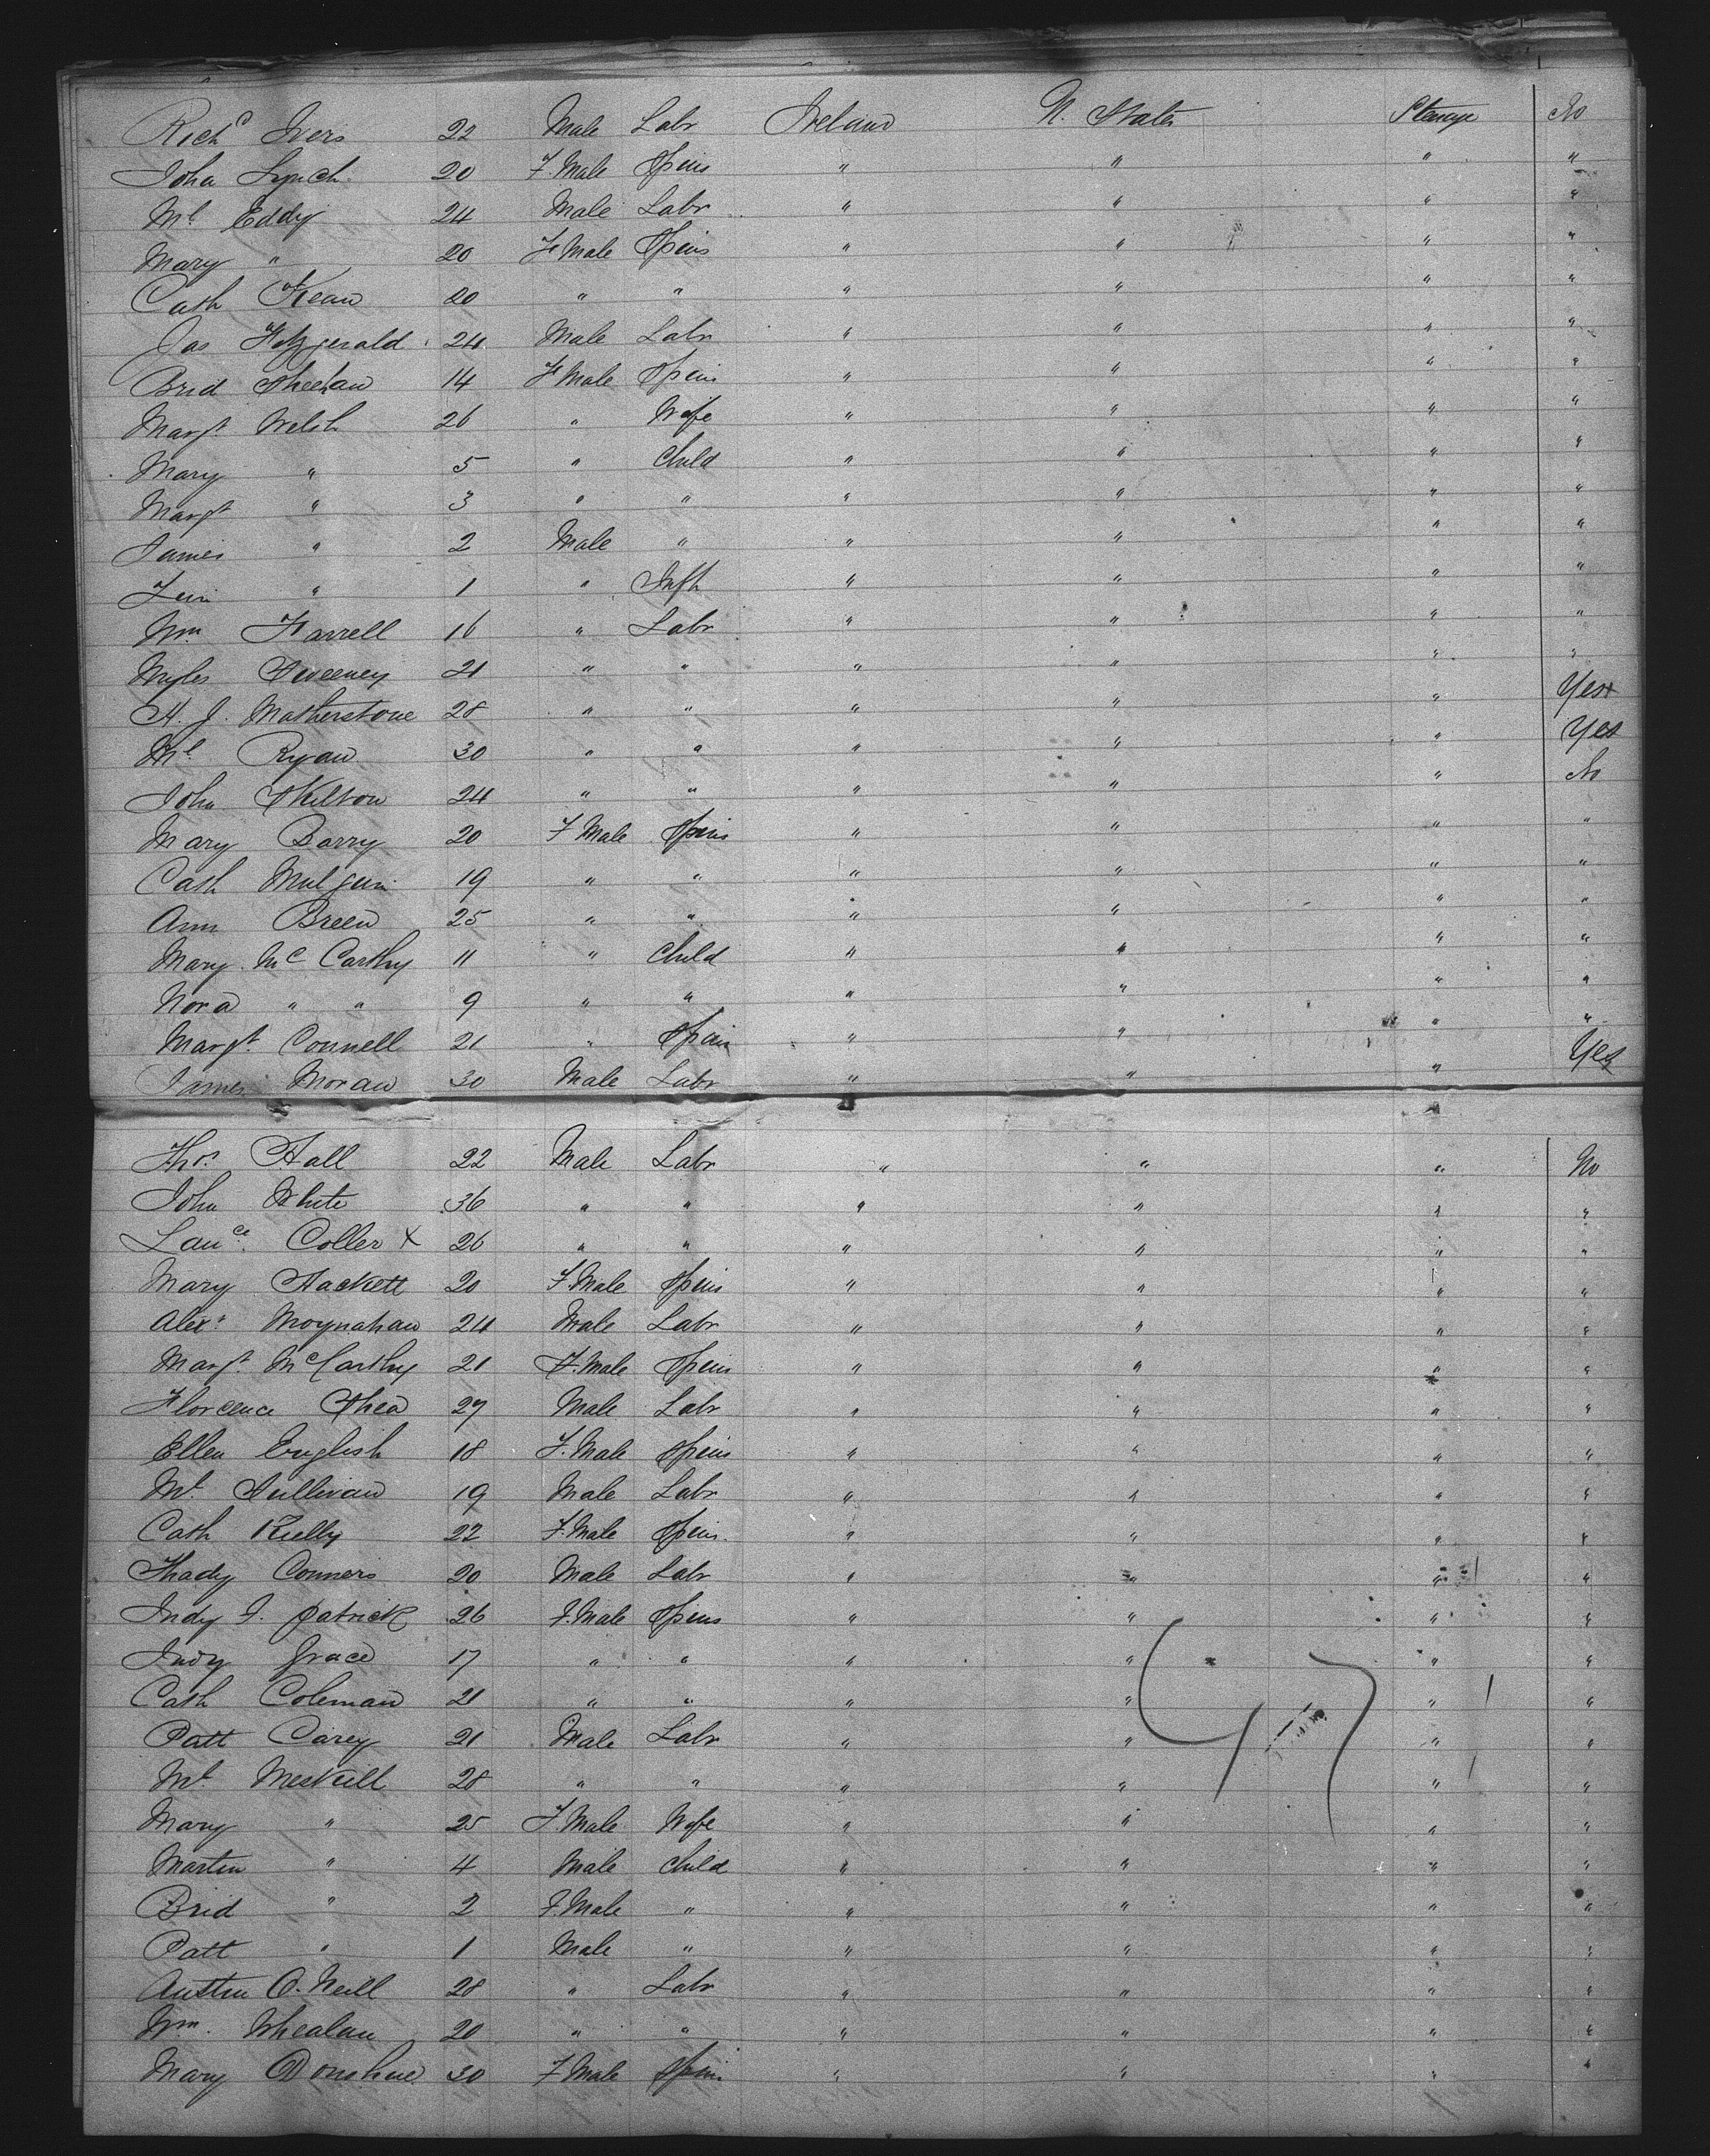 Richd Ivers 22 Male Labr Ireland U. States Steerage No
Joha Lynch 20 F. Male Spins " " " "
Ml Eddy 24 Male Labr " " " "
Mary " 20 F. Male Spins " " " "
Cath Kean 20 " " " " " "
Jas Fitzgerald 24 Male Labr " " " "
Brid Sheehan 14 F. Male Spins " " " "
Margt Welsh 26 " Wife " " " "
Mary " 5 " Child " " " "
Margt " 3 " " " " " "
James " 2 Male " " " " "
" 1 " Inft " " " "
Wm Farrell 16 " Labr " " " "
Myles Sweeney 21 " " " " " "
H. J. Matherstone 28 " " " " " Yes
Ml Ryan 30 " " " " " Yes
John Skilton 24 " " " " " No
Mary Barry 20 F Male Spins " " " "
Cath 19 " " " " " "
Ann Breen 25 " " " " " "
Mary McCarthy 11 " Child " " " "
Nora " " 9 " " " " " "
Margt Connell 21 " Spins " " " "
James Moran 30 Male Labr " " " Yes
Thos Hall 22 Male Labr " " " No
John White 36 " " " " " "
Lauce. Coller X 26 " " " " " "
Mary Hackett 20 F. Male Spins " " " "
Alexr Moynahan 24 Male Labr " " " "
Margt McCarthy 21 F. Male Spins " " " "
Florence Shea 27 Male Labr " " " "
Ellen English 18 F. Male Spins " " " "
Ml Sullivan 19 Male Labr " " " "
Cath 22 F. Male Spins " " " "
Thady Conners 20 Male Labr " " " "
Judy F. patrick 26 F. Male Spins " " " "
Judy Grace 17 " " " " " "
Cath Coleman 21 " " " " " "
Patt Carey 21 Male Labr " " " "
Ml Meskill 28 " " " " " "
Mary " 25 F. Male Wife " " " "
Martin " 4 Male Child " " " "
Brid " 2 F. Male " " " " "
Patt " 1 Male " " " " "
Austin O. Neill 28 " Labr " " " "
Wm. Whealan 20 " " " " " "
Mary Donohue 30 F Male Spins " " " "